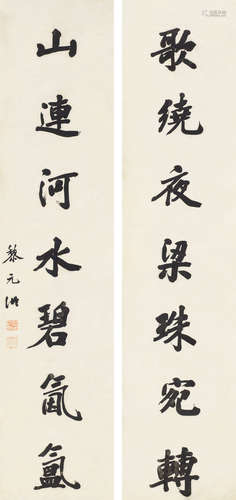 歌繞夜梁珠宛轉
山連河水碧氤氳
黎元洪